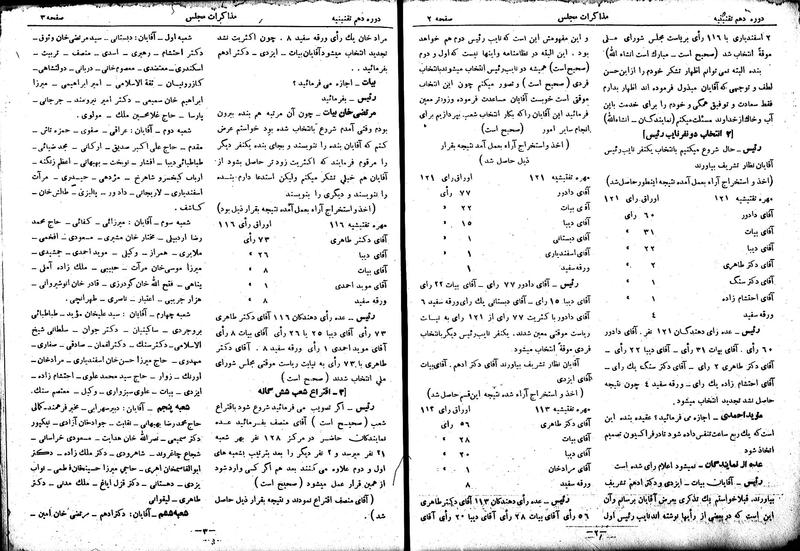 دوره دهم تقنینیه
مذاکرات مجلس
صفحه ۲
۲ اسفندیاری با ۱۱۶ رأی بریاست مجلس شورای ملی
موقةً انتخاب شد (صحیح است ـ مبارك است انشاء الله)
بنده البته نمی توانم اظهار تشکر خودم را از این حسن
لطف و توجهی که آقایان مبذول فرموده اند اظهار بدارم
فقط سعادت و توفیق همگی و خودم را برای خدمت باین
آب وخاك از خداوند مسئلت میکنم (نمایندگان ـ انشاءالله)
[۳ انتخاب دو نفر نایب رئیس]
رئیس ـ حال شروع میکنیم بانتخاب یکنفر نایب رئیس
آقایان نظار تشریف بیاورند
(اخذ و استخراج آراء بعمل آمده نتیجه اینطور حاصل شد)
مهره تفتیشیه ۱۲۱ اوراق رأی ۱۲۱
آقای دادور ۶۰ رای
آقای بیات ۳۱ »
آقای دیبا ۲۲ »
آقای دکتر طاهری ۲ »
آقای دکتر سنگ ۱ »
آقای احتشام زاده ۱ »
ورقه سفید ۴
رئیس ـ عده رای دهندگان ۱۲۱ نفر. آقای دادور
۶۰ رأی آقای بیات ۳۱ رأی ـ آقای دیبا ۲۲ رأی ـ
آقای دکتر طاهری ۲ رأی ـ آقای دکتر سنگ یك رای ـ
آقای احتشام زاده یك رای ـ ورقه سفید ۴ چون نتیجه
حاصل نشد تجدید انتخاب میشود.
مؤید احمدی ـ اجازه می فرمائید؟ عقیده بنده این
است که یك ربع ساعت تنفس داده شود تا در فراکسیون تصمیم
اتخاذ شود
عده از نمایندگان ـ نمیشود اعلام رای شده است
رئیس ـ آقایان بیات ـ ایزدی و دکتر ادهم تشریف
بیاورند. قبلا خواستم یك تذکری بعرض آقایان برسانم وآن
این است که در بعضی از رأیها نوشته اند نایب رئیس اول
و این مفهومش این است که نایب رئیس دوم هم خواهد
بود. این البته در نظامنامه واینها نیست که اول و دوم
(صحیح است) همیشه دو نایب رئیس انتخاب میشوند بانتخاب
فردی (صحیح است) و تصور میکنم چون این انتخاب
موقتی است خوبست آقایان مساعدت فرموده وزودتر معین
فرمائید این آقایان را که بکار انتخاب شعب بپردازیم برای
انجام سایر امور (صحیح است)
(اخذ و استخراج آراء بعمل آمده نتیجه بقرار
ذیل حاصل شد)
مهره تفتیشیه ۱۲۱ اوراق رای ۱۲۱
آقای دادور ۷۷ رأی
آقای بیات ۲۲ »
آقای دیبا ۱۵ »
آقای دبستانی ۱ »
آقای اسفندیاری ۱ »
ورقه سفید
رئیس ـ آقای دادور ۷۷ رای ـ آقای بیات ۲۲ رای
آقای دیبا ۱۵ رای ـ آقای دبستانی یك رای ورقه سفید ۶
آقای دادور با کثریت ۷۷ رای از ۱۲۱ رای به نیابت
ریاست موقتی معین شدند. یکنفر نایب رئیس دیگر بانتخاب
فردی موقةً انتخاب میشود
آقایان نظار تشریف بیاورند آقای دکتر ادهم. آقای بیات
آقای ایزدی
(اخذ و استخراج آراء شده نتیجه این قسم حاصل شد)
مهره تفتیشیه ۱۱۳ اوراق رای ۱۱۳
آقای دکتر طاهری ۵۶ رای
آقای بیات ۲۸ »
آقای دیبا ۲۰ »
آقای مرادخان ۱ »
ورقه سفید ۸
رئیس ـ عده رأی دهندگان ۱۱۳ آقای دکتر طاهری
۵۶ رأی آقای بیات ۲۸ رأی آقای دیبا ۲۰ رأی آقای
ـ ۲ ـ
دوره دهم تقنینیه
مذاکرات مجلس
صفحه ۳
مراد خان یك رأی ورقه سفید ۸. چون اکثریت نشد
تجدید انتخاب میشود آقایان بیات ـ ایزدی ـ دکتر ادهم
بفرمائید..
بیات ـ اجازه می فرمائید؟
رئیس ـ بفرمائید
مرتضی خان بیات ـ چون آن مرتبه هم بنده بیرون
بودم وقتی آمدم شروع بانتخاب شده بود خواستم عرض
کنم که آقایان بنده را ننویسند و بجای بنده یکنفر دیگر
را مرقوم فرمایند که اکثریت زودتر حاصل بشود از
آقایان هم خیلی تشکر میکنم ولیکن استدعا دارم بنده
را ننویسند و دیگری را بنویسند
(اخذ واستخراج آراء بعمل آمده نتیجه بقرار ذیل بود)
مهره تفتیشیه ۱۱۶ اوراق رأی ۱۱۶
آقای دکتر طاهری ۷۳ رأی
آقای دیبا ۲۶ »
آقای بیات ۸ »
آقای موید احمدی ۱ »
ورقه سفید ۸
رئیس ـ عده رأی دهندگان ۱۱۶ آقای دکتر طاهری
۷۳ رأی آقای دیبا ۲۵ یا ۲۶ رأی آقای بیات ۸ رأی
آقای موید احمدی ۱ رأی ورقه سفید ۸. آقای دکتر
طاهری با ۷۳ رأی به نیابت ریاست موقتی مجلس شورای
ملی انتخاب شدند (صحیح است)
[۴ ـ اقتراع شعب شش گانه]
رئیس ـ اکر تصویب می فرمائید شروع شود باقتراع
شعب (صحیح است) آقای منصف بفرمائید عده
نمایندگان حاضر در مرکز ۱۲۸ نفر بهر شعبه
۲۱ نفر میرسد و ۲ نفر دیگر را بعد بترتیب بشعبه های
اول و دوم علاوه می کنند بعد هم اکر کسی وارد شود
از همین قرار عمل میشود (صحیح است)
(آقای منصف اقتراع نمودند و نتیجه بقرار ذیل حاصل
شد).
شعبه اول ـ آقایان: دبستانی ـ سید مرتضی خان وثوق ـ
دکتر احتشام ـ رهبری ـ اسدی ـ منصف ـ تربیت ـ
اسکندری ـ معتضدی ـ معصوم خانی ـ دربانی ـ دولتشاهی ـ
کازرونیان ـ ثقة الاسلامی ـ امیر ابراهیمی ـ میرزا
ابراهیم خان سمیعی ـ دکتر امیر نیرومند ـ جرجانی ـ
پارسا ـ حاج غلامحسین ملك ـ مولوی.
شعبه دوم ـ آقایان: عراقی ـ صفوی ـ حمزه تاش ـ
مقدم ـ حاج علی اکبر صدیق ـ ارکانی ـ مجد ضیائی ـ
طباطبائی دیبا ـ افشار ـ نوبخت ـ بهبهانی ـ اعظم زنگنه
ارباب کیخسرو شاهرخ ـ مژدهی ـ حیدری ـ مرآت
اسفندیاری ـ لاریجانی ـ دادور ـ پالیزی ـ طالش خان ـ
کاشف.
شعبه سوم ـ آقایان: میرزائی ـ کفائی ـ حاج محمد
رضا اردبیلی ـ مختار خان مشیری ـ مسعودی ـ افخمی ـ
ملایری ـ همراز ـ وکیلی ـ موید احمدی ـ جمشیدی ـ
میرزا موسی خان مرآت ـ حبیبی ـ ملك زاده آملی ـ
پناهی ـ فتح الله خان گودرزی ـ قادر خان انوشیروانی
هزار جریبی ـ اعتبار ـ ناصری ـ طهرانچی.
شعبه چهارم ـ آقایان: سید علیخان مؤید ـ طباطبائی
بروجردی ـ ساکینیان ـ دکتر جوان ـ سلطانی شیخ
الاسلامی ـ دکتر سنگ ـ دکتر لقمان ـ صادقی ـ صفاری ـ
مهدوی ـ حاج میرزا حسن خان اسفندیاری ـ مرادخان ـ
اورنگ ـ زوار ـ حاج سید محمد علوی ـ احتشام زاده ـ
ایزدی ـ بیات ـ علوی سبزواری ـ وکیل ـ معتصم سنگ.
شعبه پنجم ـ آقایان: دبیر سهرابی ـ مخبر فرهمند ـ کمالی
حاج محمد رضا بهبهانی ـ نقابت ـ جواد خان آزادی ـ نیکپور
دکتر سمیعی ـ نصرالله خان هدایت ـ مسعودی خراسانی ـ
شجاع چاغروند ـ شاهرودی ـ دکتر ملك زاده ـ دکتر
ابوالقاسم خان اهری ـ حاجی میرزا حسینخان فطیمی ـ نواب
یزدی ـ دهستانی ـ دکتر قزل ایاغ ـ ملك مدنی ـ دکتر
طاهری ـ لیقوانی
شعبه ششم ـ آقایان: دکتر ادهم ـ مرتضی خان امین ـ
ـ ۳ ـ